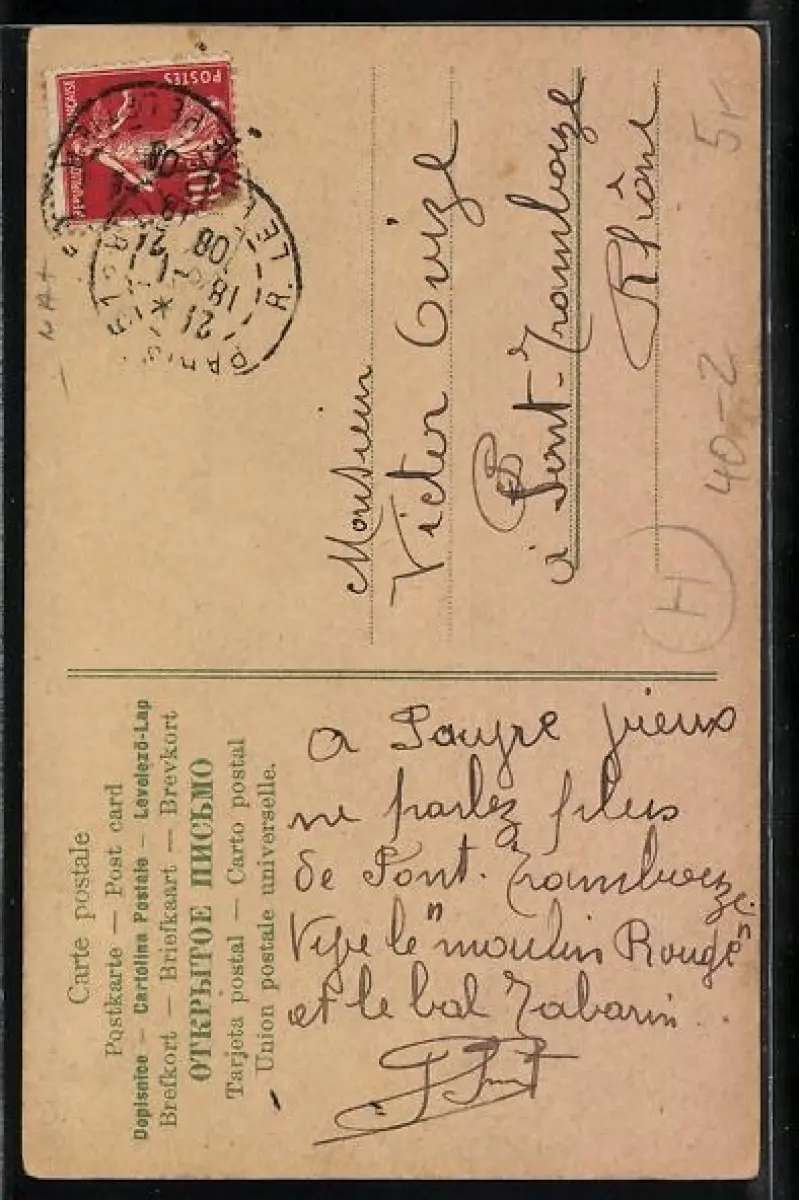 Carte postale
Postkarte — Post card
Dopisnice — Cartolina Postale — Levelező-Lap
Brefkort — Briefkaart — Brevkort
ОТКРЫТОЕ ПИСЬМО
Tarjeta postal — Carto postal
Union postale universelle.
a
ne parlez plus
de Pont-Trambouze
le "moulin Rouge"
et le bal Tabarin
Monsieur
Victor
à Pont-Trambouze
Rhône
POSTES
10
PARIS
R. LE
21
18
08
40-2
H
5